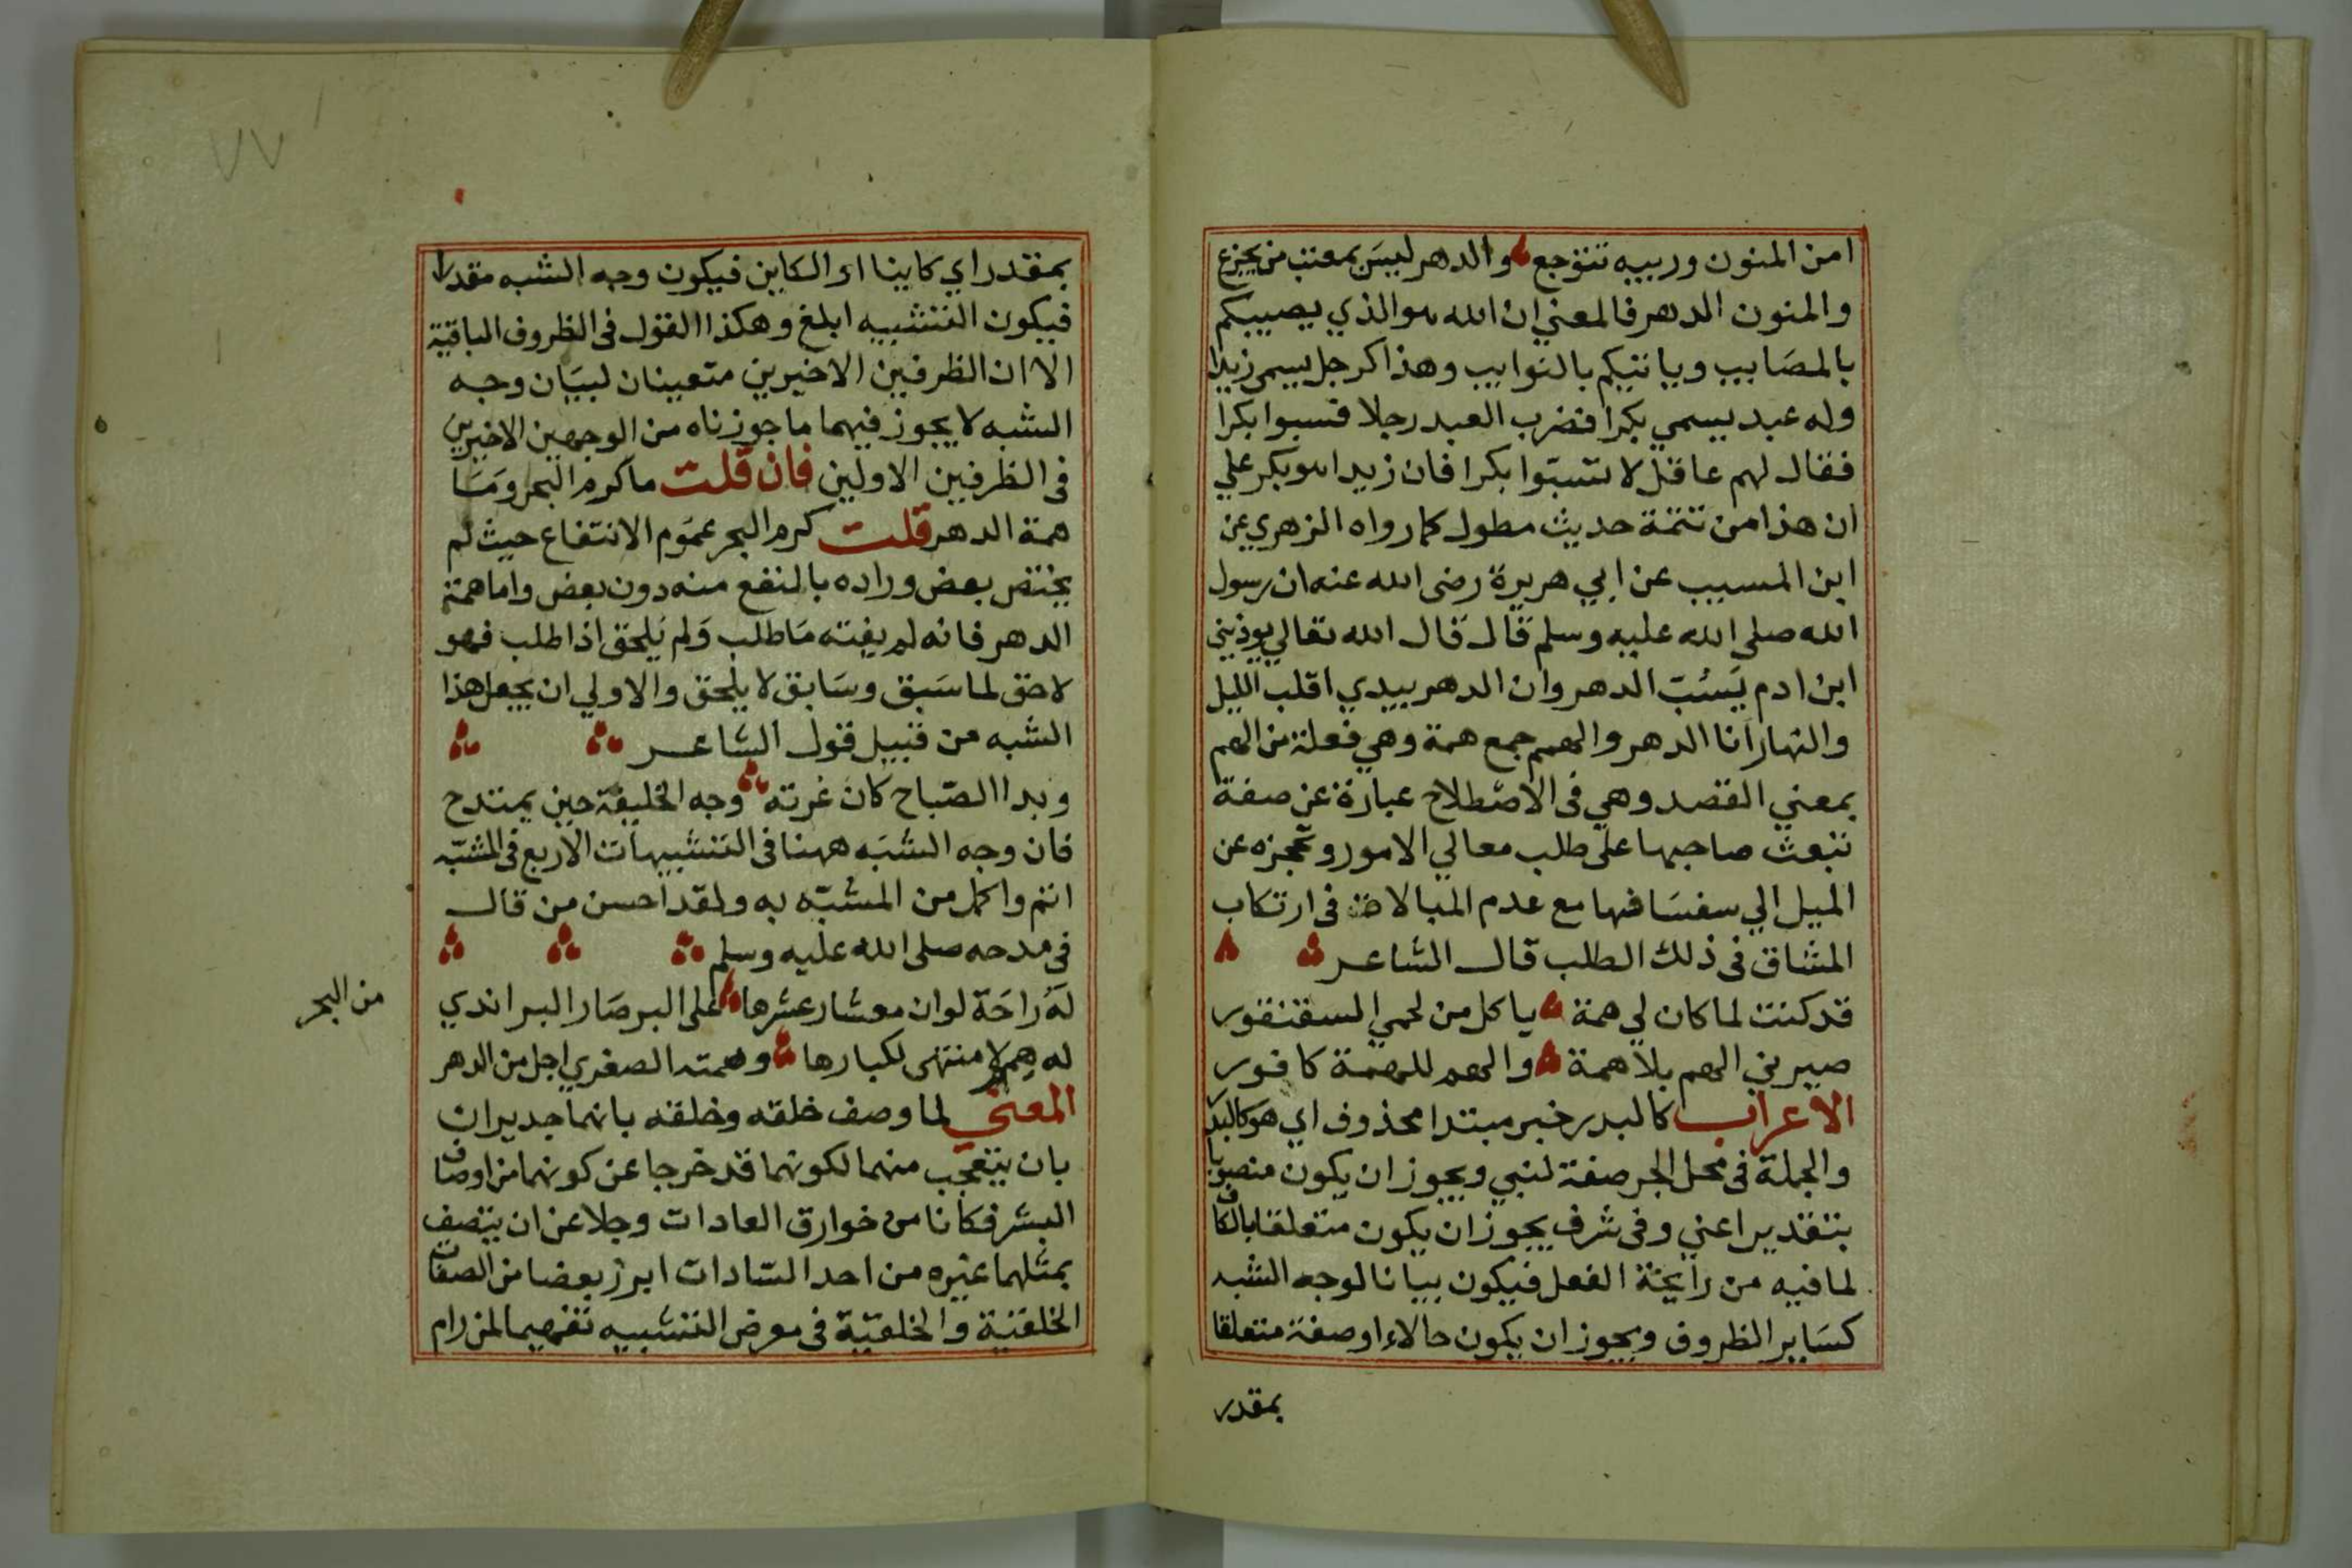 امن المنون وريبه تتوجع والدهر ليس بمعتب من يجزع
والمنون الدهر فالمعني ان الله هو الذي يصيبكم
بالمصايب وياتيكم بالنوايب وهذا كرجل يسمي زيدا
وله عبد يسمي بكرا فضرب العبد رجلا فسبوا بكرا
فقال لهم عاقل لا تسبوا بكرا فان زيدا هو بكر علي
ان هذا من تتمة حديث مطول كما رواه الزهري عن
ابن المسيب عن ابي هريرة رضى الله عنه ان رسول
الله صلى الله عليه وسلم قال قال الله تعالي يوذيني
ابن ادم يسب الدهر وان الدهر بيدي اقلب الليل
والنهار انا الدهر والهمم جمع همة وهي فعلة من الهم
بمعني القصد وهي فى الاصطلاح عبارة عن صفة
تبعث صاحبها على طلب معالي الامور وتحجزه عن
الميل الي سفسافها مع عدم المبالاة فى ارتكاب
المشاق فى ذلك الطلب قال الشاعر
قد كنت لما كان لي همة ياكل من لحمي السقنقور
صيرني الهم بلا همة والهم للهمة كافور
الاعراب كالبدر خبر مبتدا محذوف اي هو كالبدر
والجملة فى محل الجر صفة لنبي ويجوز ان يكون منصوبا
بتقدير اعني وفى شرف يجوز ان يكون متعلقا بالكاف
لما فيه من رايحة الفعل فيكون بيانا لوجه الشبه
كساير الظروف ويجوز ان يكون حالا او صفة متعلقا
بمقدر
بمقدر اي كاينا او الكاين فيكون وجه الشبه مقدرا
فيكون التشبيه ابلغ وهكذا القول فى الظروف الباقية
الا ان الظرفين الاخيرين متعينان لبيان وجه
الشبه لا يجوز فيهما ما جوزناه من الوجهين الاخيرين
فى الظرفين الاولين فان قلت ما كرم البحر وما
همة الدهر قلت كرم البحر عموم الانتفاع حيث لم
يختص بعض وراده بالنفع منه دون بعض واما همة
الدهر فانه لم يفته ما طلب ولم يلحق اذا طلب فهو
لاحق لما سبق وسابق لا يلحق والاولي ان يجعل هذا
الشبه من قبيل قول الشاعر
وبدا الصباح كان غرته وجه الخليفة حين يمتدح
فان وجه الشبه ههنا فى التشبيهات الاربع فى المشبه
اتم واكمل من المشبه به ولقد احسن من قال
فى مدحه صلى الله عليه وسلم
له راحة لو ان معشار عشرها على البر صار البر اندي
من البحر
له همم لا منتهى لكبارها وهمته الصغري اجل من الدهر
المعني لما وصف خلقه وخلقه بانهما جديران
بان يتعجب منهما لكونهما قد خرجا عن كونهما من اوصاف
البشر فكانا من خوارق العادات وجلا عن ان يتصف
بمثلهما غيره من احد السادات ابرز بعضا من الصفات
الخلقية والخلقية فى معرض التشبيه تفهيما لمن رام
٧٧